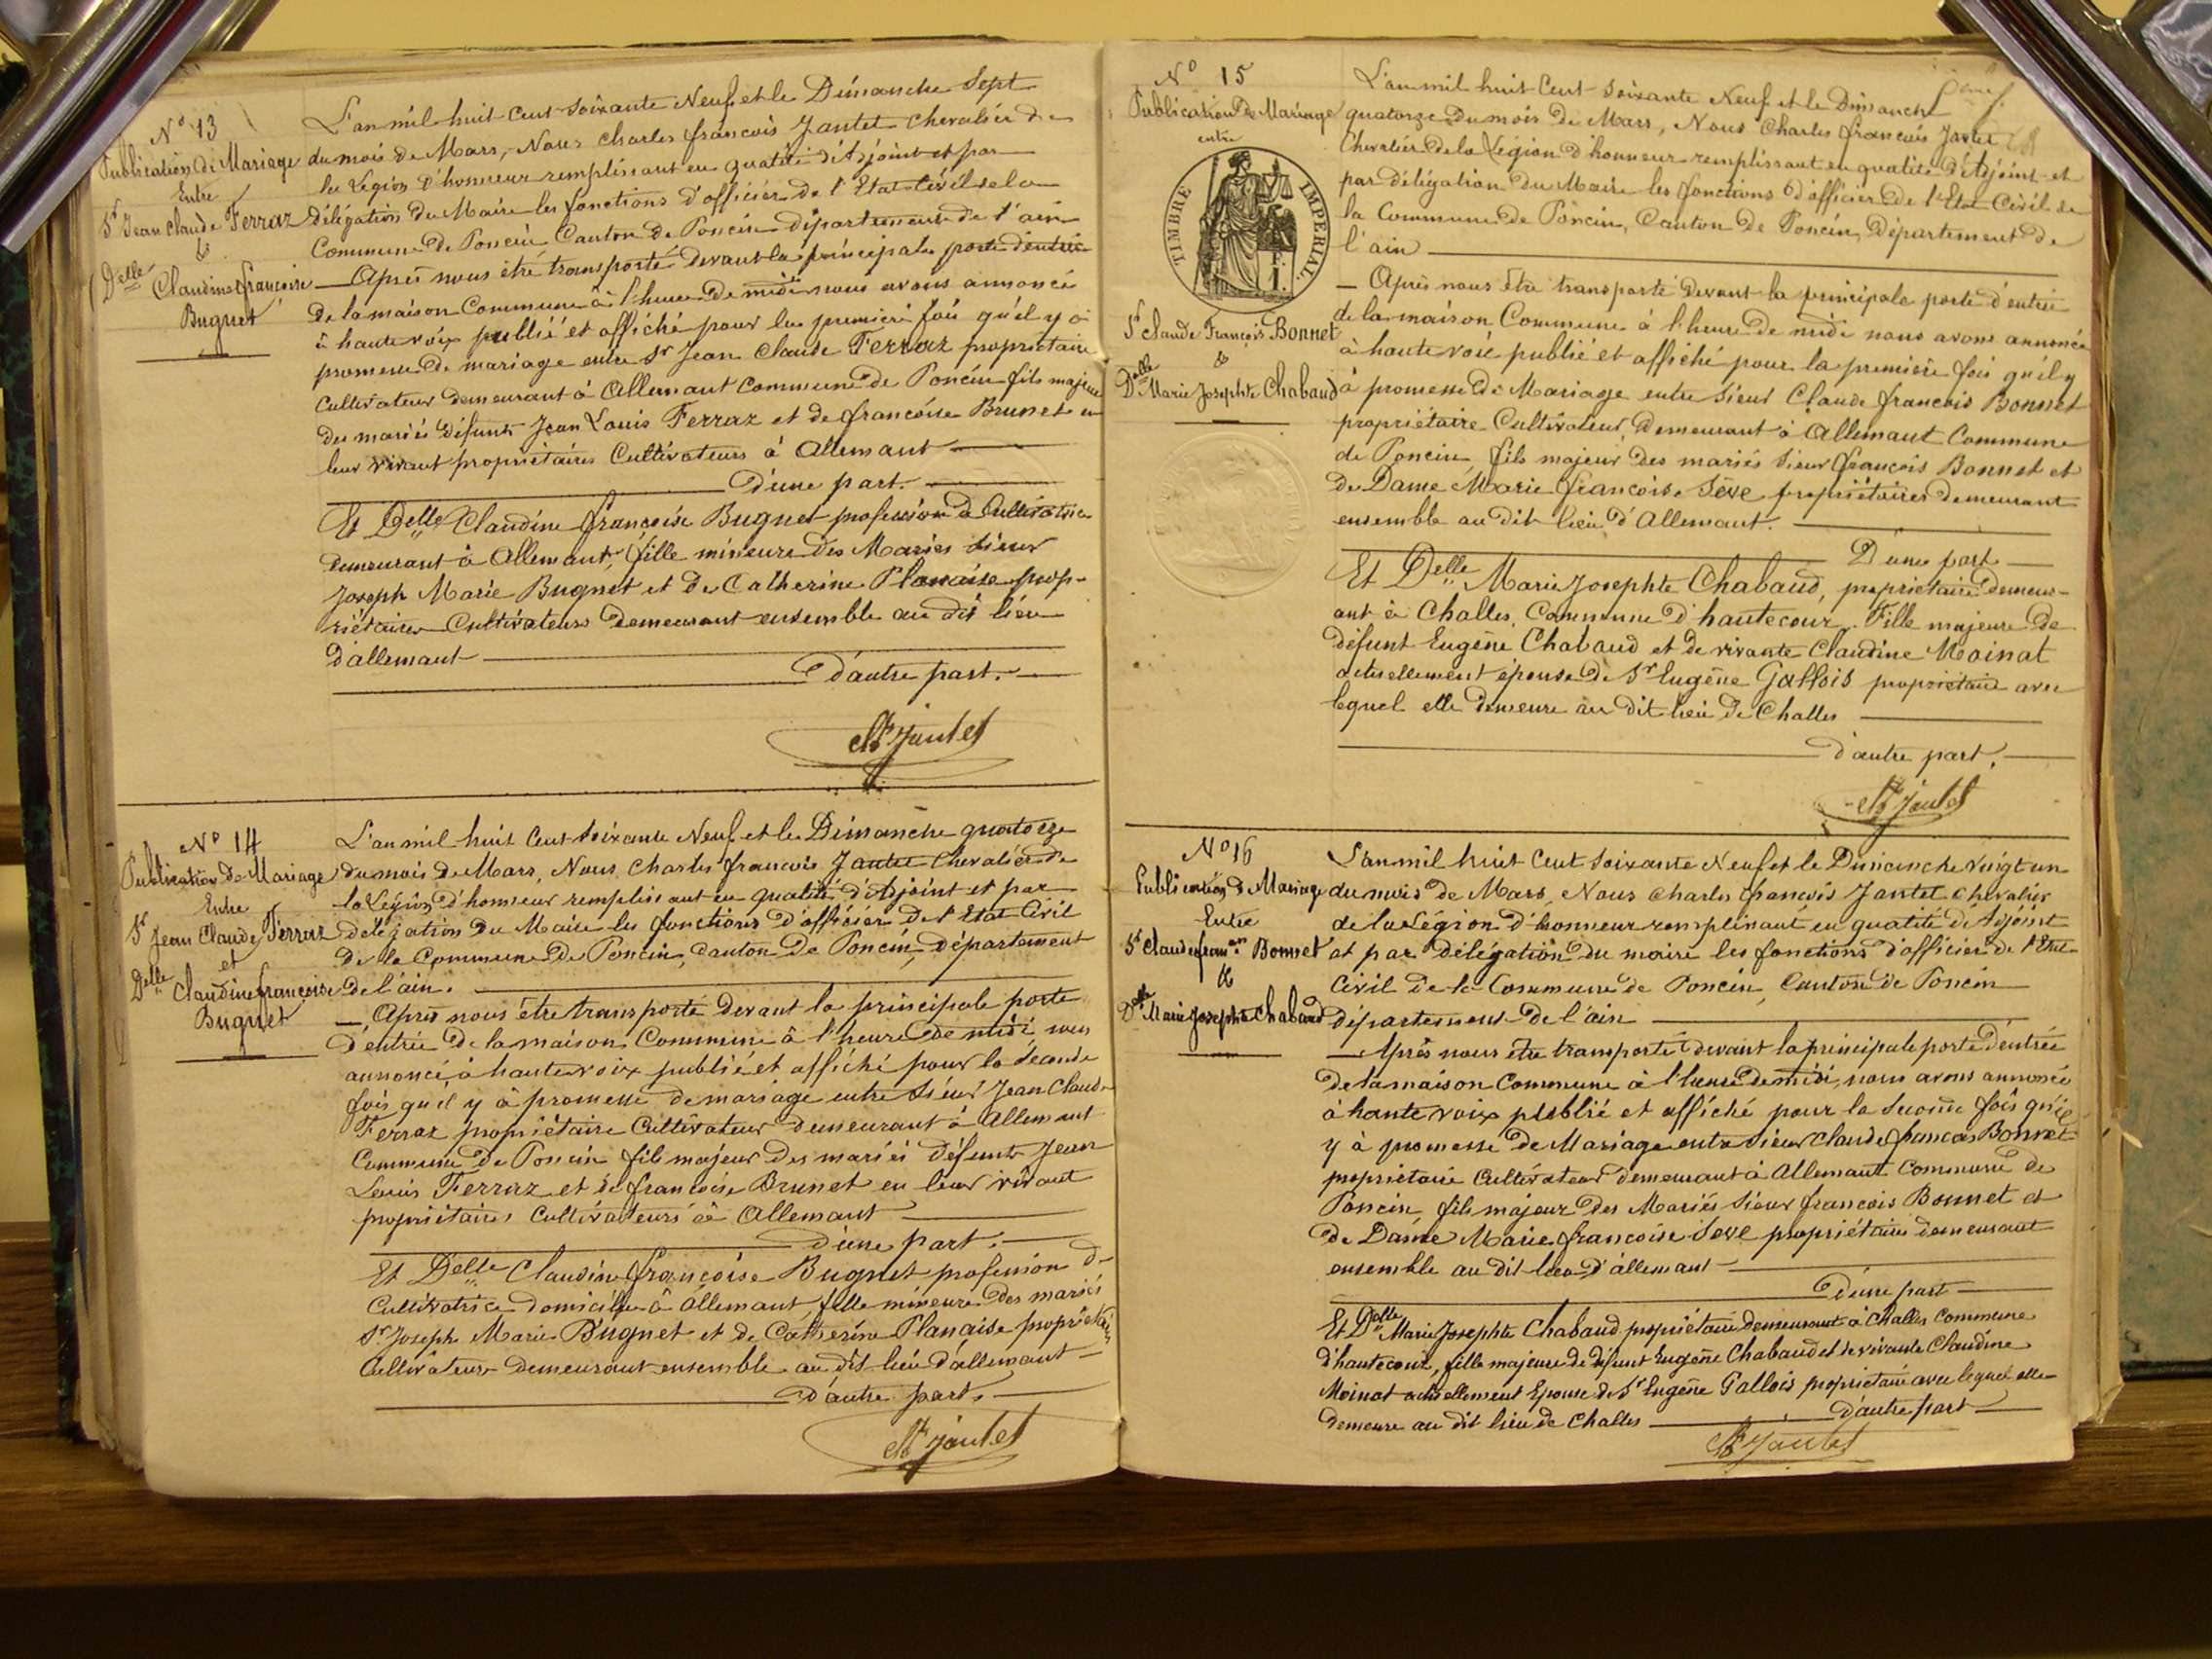 N° 13
Publication de Mariage
Entre
Sr Jean Claude Ferraz
&
Delle Claudine françoise
Bugnet
L'an mil huit Cent soixante Neuf et le Dimanche Sept
du mois de Mars, Nous Charles françois Jantet Chevalier de
la Légion d'honneur remplissant en qualité d'Adjoint et par
délégation du Maire les fonctions d'officier de l'Etat Civil de la
Commune de Poncin Canton de Poncin département de l'ain
Après nous être transporté devant la principale porte d'entrée
de la maison Commune à l'heure de midi nous avons annoncé
à haute voix publié et affiché pour la première fois qu'il y a
promesse de mariage entre Sr Jean Claude Ferraz propriétaire
Cultivateur demeurant à Allemant Commune de Poncin fils majeur
des mariés défunts Jean Louis Ferraz et de françoise Brunet en
leur vivant propriétaires Cultivateurs à Allemant
D'une part.
Et Delle Claudine françoise Bugnet profession de Cultivatrice
demeurant à Allemant, fille mineure des Mariés sieur
Joseph Marie Bugnet et de Catherine Planaise prop-
riétaires Cultivateurs demeurant ensemble au dit lieu
d'allemant
D'autre part.
Ch Jantet
N° 14
Publication de Mariage
Entre
Sr Jean Claude Ferraz
et
Delle Claudine françoise
Bugnet
L'an mil huit Cent soixante Neuf et le Dimanche quatorze
du mois de Mars, Nous Charles françois Jantet Chevalier de
la Légion d'honneur remplissant en qualité d'Adjoint et par
délégation du Maire les fonctions d'officier de l'Etat Civil
de la Commune de Poncin, Canton de Poncin, Département
de l'ain.
Après nous être transporté devant la principale porte
d'entrée de la maison Commune à l'heure de midi nous
annoncé à haute voix publié et affiché pour la seconde
fois qu'il y à promesse de mariage entre Sieur Jean Claude
Ferraz propriétaire Cultivateur demeurant à Allemant
Commune de Poncin fils majeur des mariés défunts Jean
Louis Ferraz et de françoise Brunet en leur vivant
propriétaires Cultivateurs à Allemant
d'une part.
Et Delle Claudine françoise Bugnet profession de
Cultivatrice domiciliée à Allemant, fille mineure des mariés
Sr Joseph Marie Bugnet et de Catherine Planaise propriétaires
Cultivateurs demeurant ensemble au dit lieu d'allemant
D'autre part.
Ch Jantet
N° 15
Publication de Mariage
entre
TIMBRE IMPERIAL.
Sr Claude François Bonnet
&
Delle Marie Josephte Chabaud
L'an mil huit Cent soixante Neuf et le Dimanche
quatorze du mois de Mars, Nous Charles françois Jantet
Chevalier de la Légion d'honneur remplissant en qualité d'Adjoint et
par délégation du Maire les fonctions d'officier de l'Etat Civil de
la Commune de Poncin, Canton de Poncin, Département de
l'ain
Après nous être transporté devant la principale porte d'entrée
de la maison Commune à l'heure de midi nous avons annoncé
à haute voix publié et affiché pour la première fois qu'il y
à promesse de Mariage entre Sieur Claude françois Bonnet
propriétaire Cultivateur demeurant à Allemant Commune
de Poncin fils majeur des mariés Sieur françois Bonnet et
de Dame Marie françoise Sève propriétaires demeurant
ensemble au dit lieu d'Allemant.
D'une part
Et Delle Marie Josephte Chabaud, propriétaire demeur-
ant à Challes, Commune d'hautecour. Fille majeure de
défunt Eugène Chabaud et de vivante Claudine Moinat
actuellement épouse de Sr Eugène Gallois propriétaire avec
lequel elle demeure au dit lieu de Challes
d'autre part.
Ch Jantet
N° 16
Publication de Mariage
Entre
Sr Claude fran.on Bonnet
&
Delle Marie Josephte Chabaud
L'an mil huit Cent soixante Neuf et le Dimanche vingt un
du mois de Mars, Nous Charles françois Jantet Chevalier
de la Légion d'honneur remplissant en qualité d'Adjoint
et par délégation du maire les fonctions d'officier de l'Etat
Civil de la Commune de Poncin, Canton de Poncin
département de l'ain
Après nous être transporté devant la principale porte d'entrée
de la maison Commune à l'heure de midi, nous avons annoncé
à haute voix publié et affiché pour la seconde fois qu'il
y à promesse de Mariage entre Sieur Claude françois Bonnet
propriétaire Cultivateur demeurant à Allemant Commune de
Poncin fils majeur des Mariés Sieur françois Bonnet et
de Dame Marie françoise Seve propriétaires demeurant
ensemble au dit lieu d'allemant
D'une part
Et Delle Marie Josephte Chabaud propriétaire demeurant à Challes Commune
d'hautecour, fille majeure de défunt Eugène Chabaud et de vivante Claudine
Moinat actuellement Epouse de Sr Eugène Gallois propriétaire avec lequel elle
demeure au dit lieu de Challes D'autre part
Ch Jantet